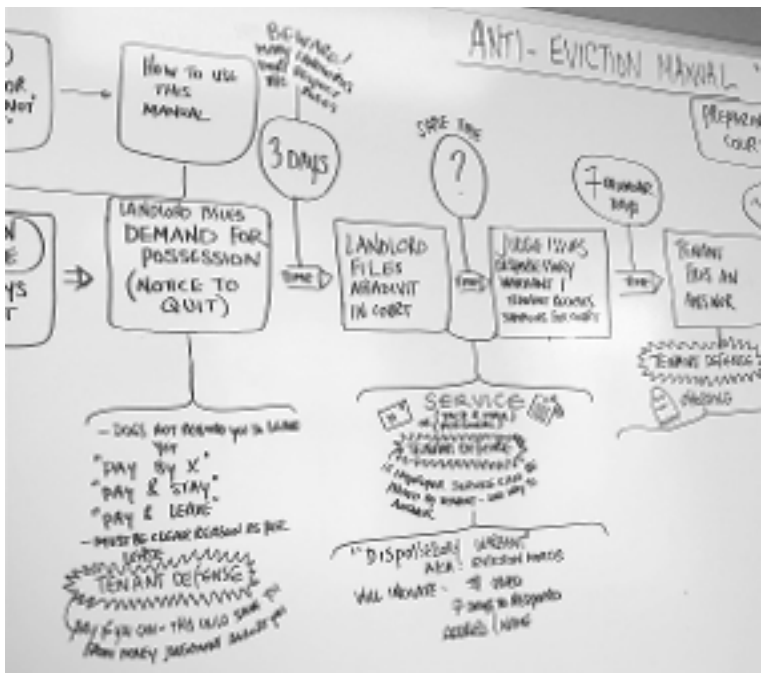 ANTI-EVICTION MANUAL
OR
NOT
HOW TO USE
THIS
MANUAL
BEWARE!
MANY LANDLORDS
RULES
3 DAYS
SAME TIME
?
7 CALENDAR
DAYS
PREPARIN
COURT
LANDLORD ISSUES
DEMAND FOR
POSSESSION
(NOTICE TO
QUIT)
TIME
LANDLORD
FILES
AFFADIVIT
IN COURT
TIME
JUDGE ISSUES
DISPOSSESSORY
WARRANT /
TENANT RECEIVES
SUMMONS FOR COURT
TIME
TENANT
FILES AN
ANSWER
TENANT DEFENSE
- DOES NOT REQUIRE YOU TO LEAVE
YET
"PAY BY X"
"PAY & STAY"
"PAY & LEAVE"
- MUST BE CLEAR REASON AS PER
LEASE
TENANT DEFENSE
PAY IF YOU CAN - THIS COULD SAVE YOU
FROM MONEY JUDGEMENT AGAINST YOU
SERVICE
TENANT DEFENSE
IF IMPROPER SERVICE CAN BE
ANSWER
"DISPOSSESSORY WARRANT
AKA: EVICTION PAPERS
WILL INDICATE -
7 DAYS TO RESPOND
ADDRESS / NAME